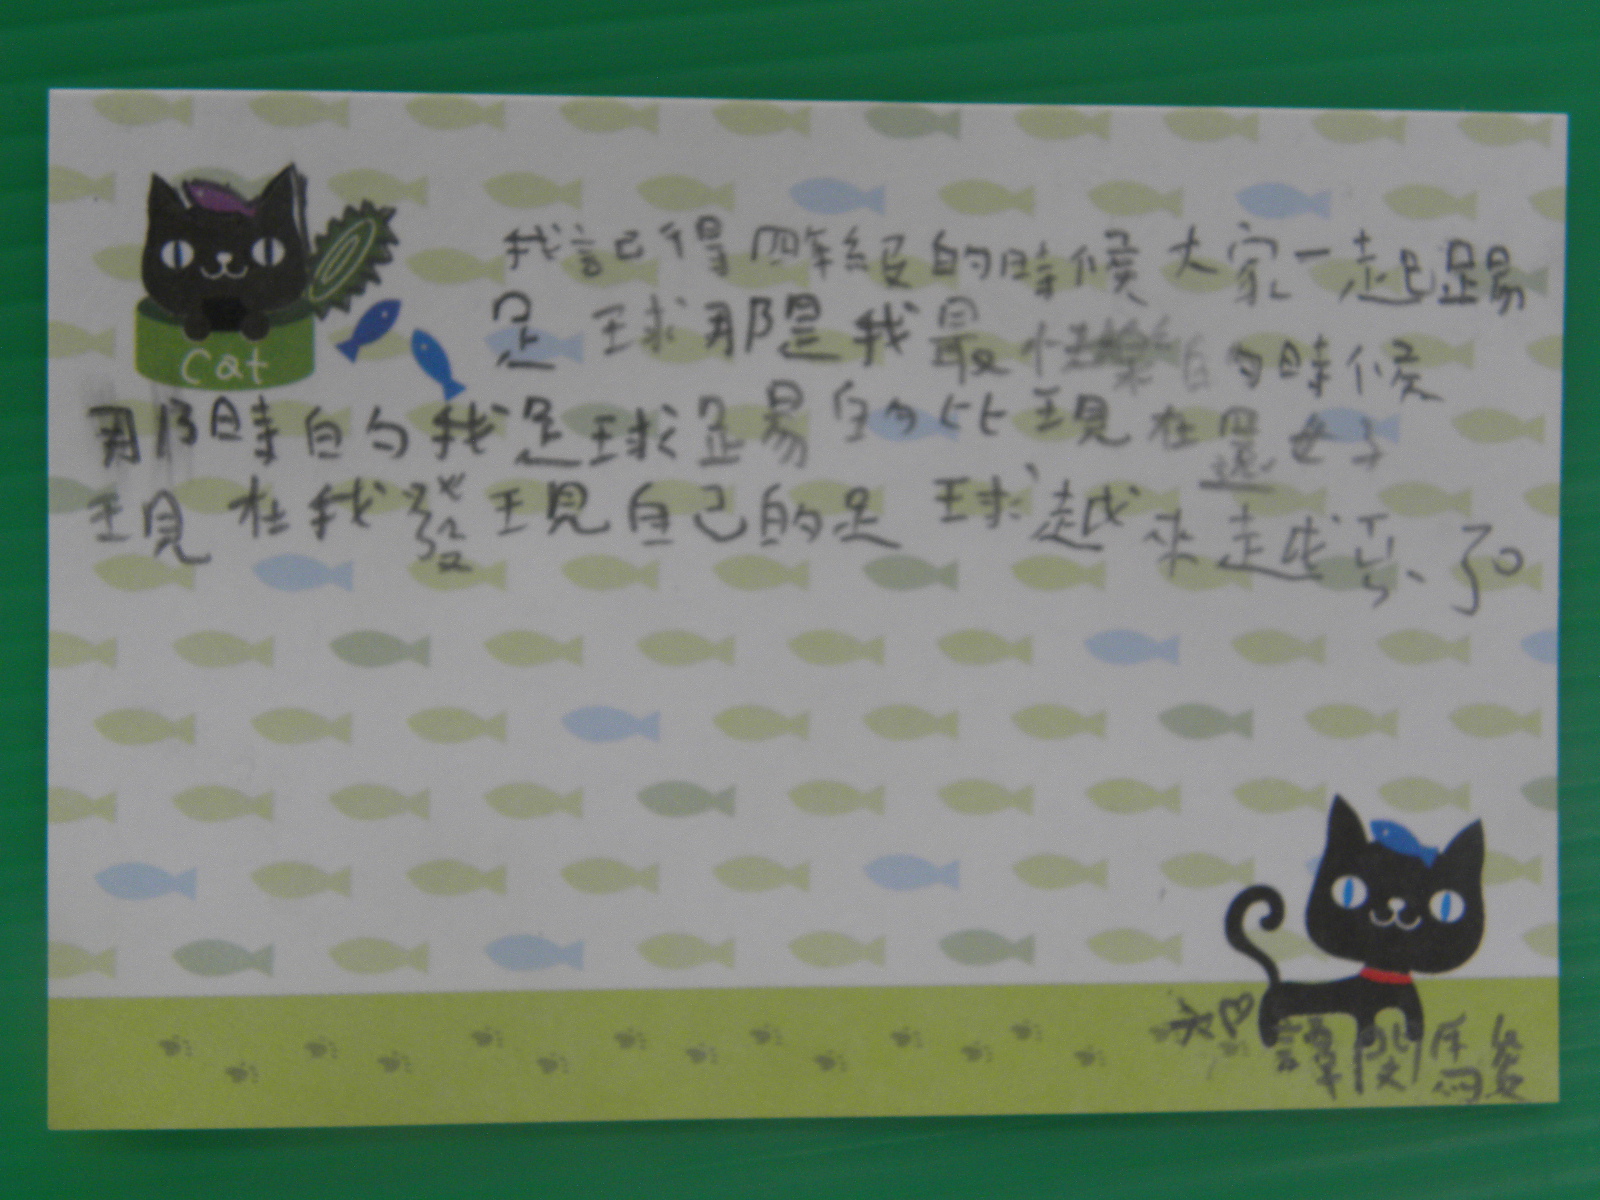 Cat
我記得四年級的時候大家一起踢
足球那是我最快樂的時候
那時的我足球踢的比現在還好
現在我發現自己的足球越來越
了。
譚閔駿